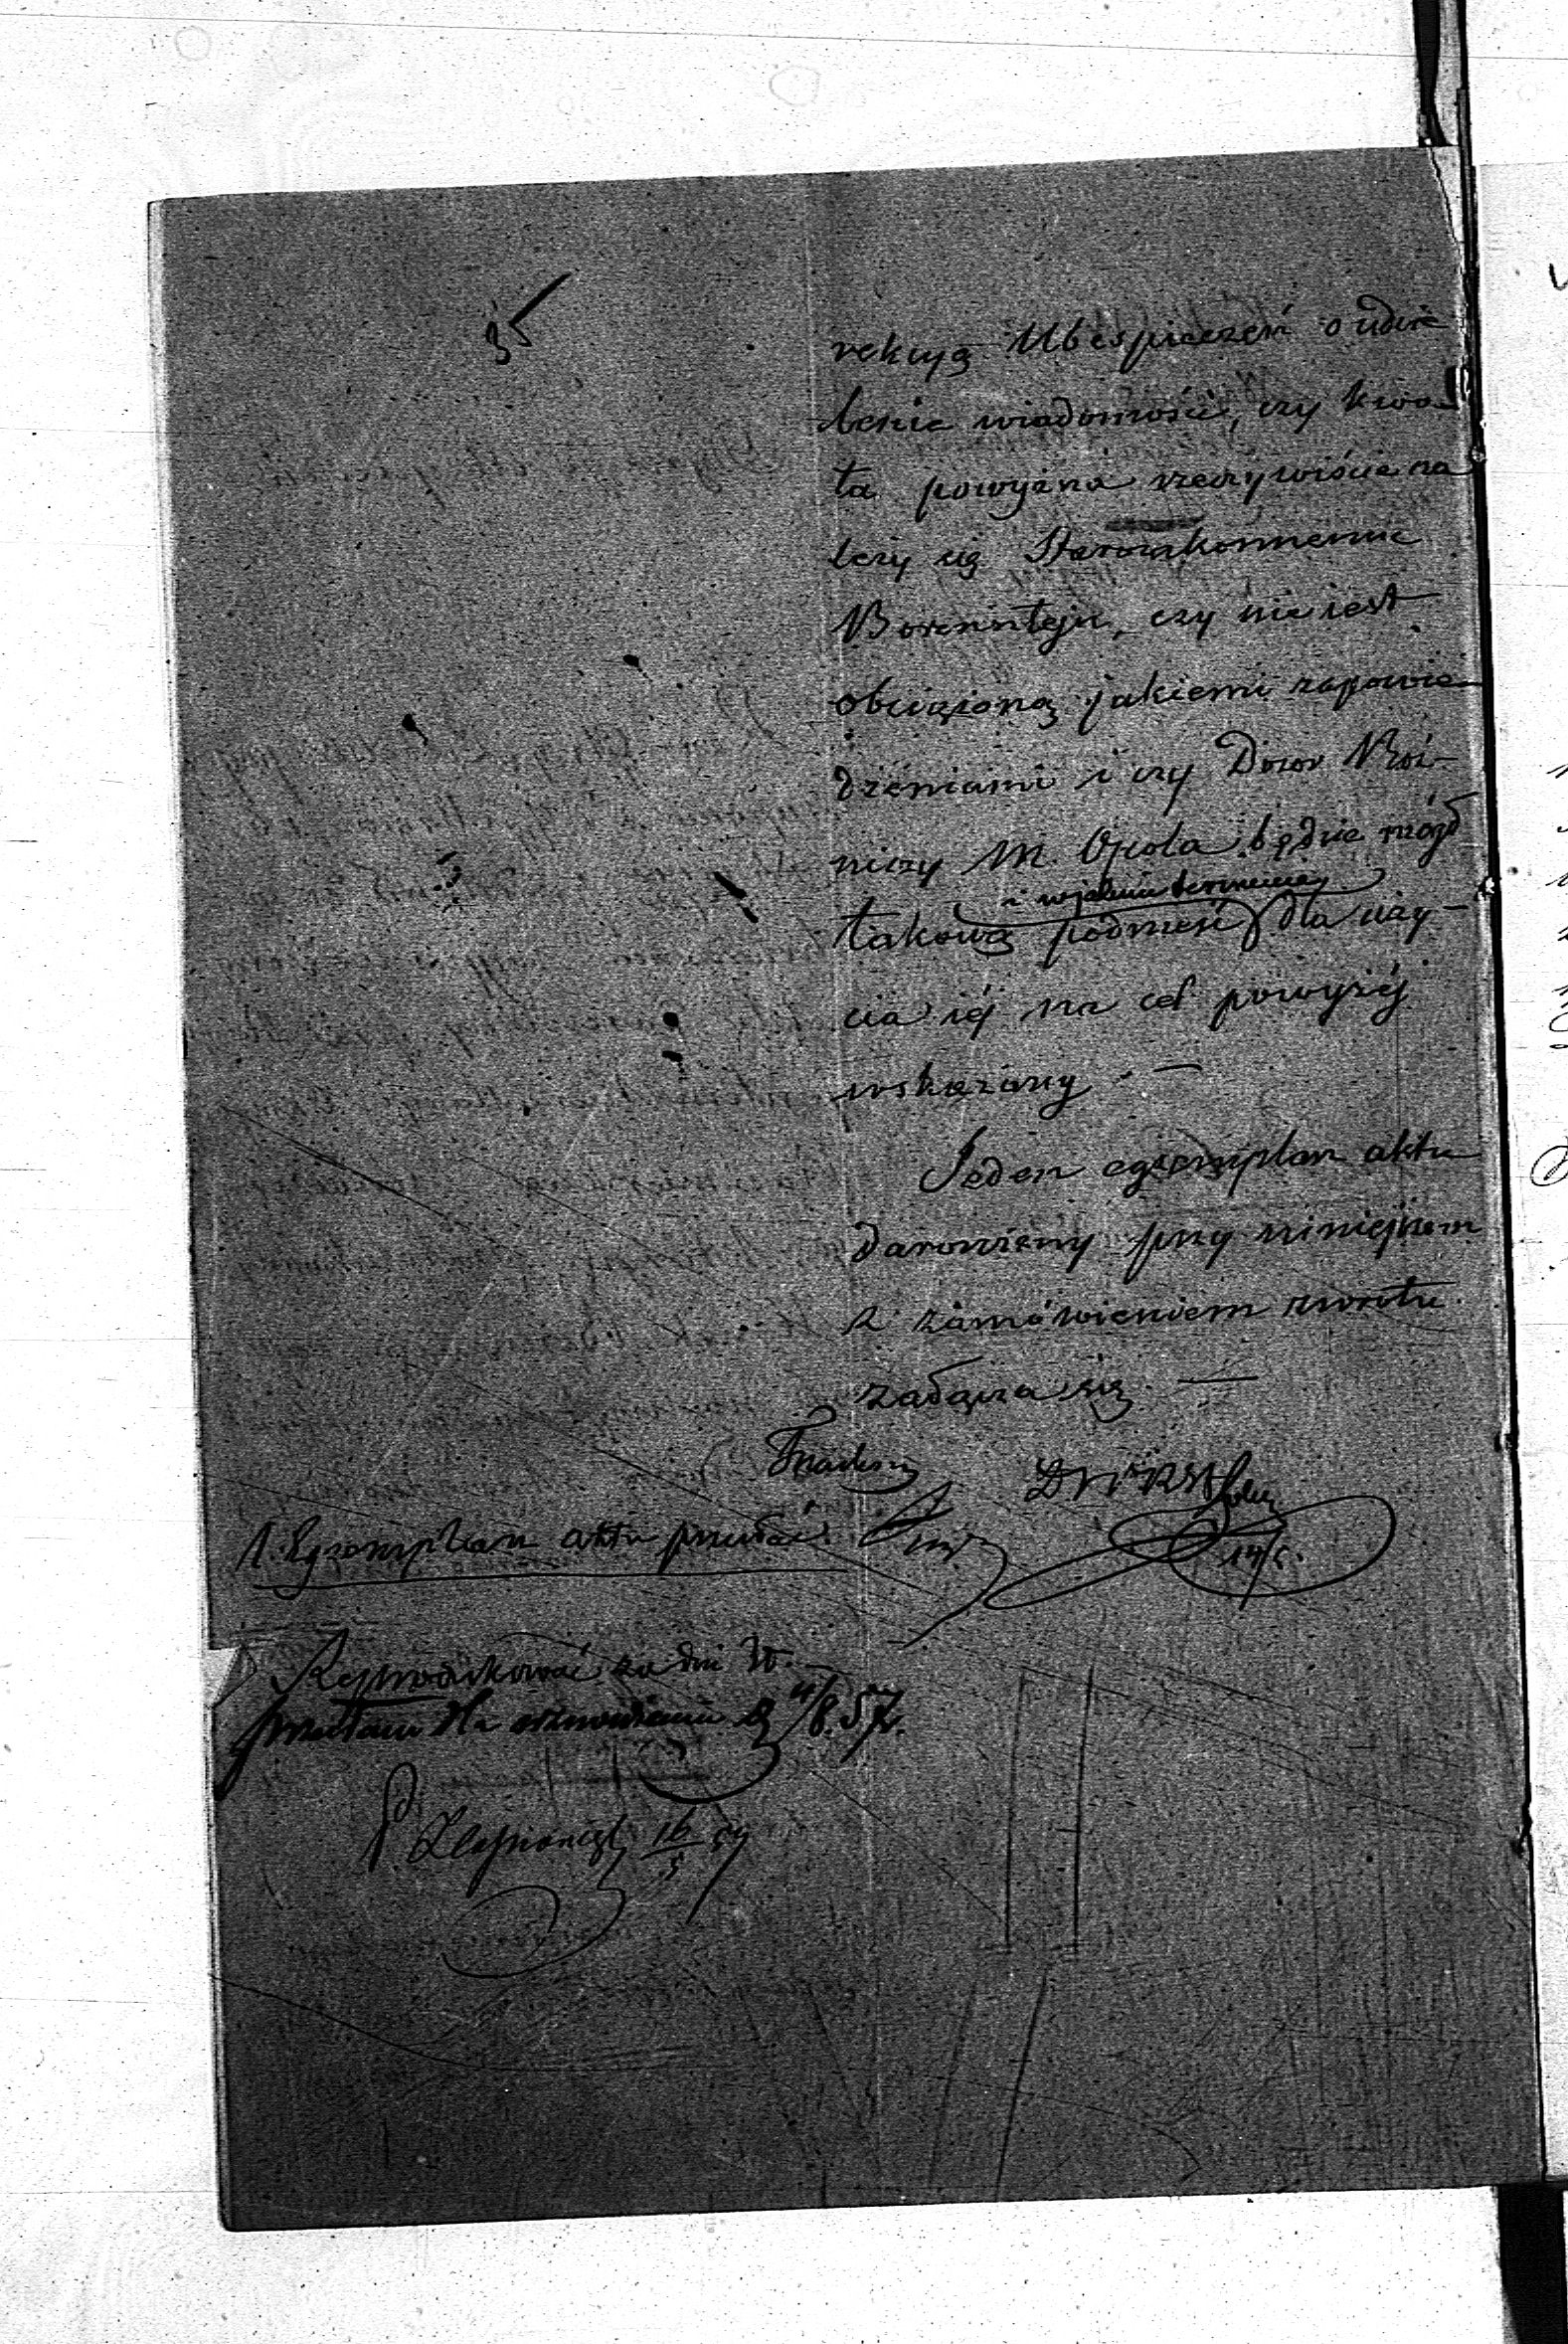 35
rekcyą Ubespieczeń o udzie
lenie wiadomości, czy kwo-
ta powyższa rzeczywiście na
leży się Starozakonnemu
Borensztejn, czy nie iest
obciążoną jakiemi zapowie-
dzeniami i czy Dozor Boż-
niczy M. Opola będzie mógł
i w jakim terminie
takową podnieść dla uży-
cia iéj na cel powyżéj
wskazany. —
Jeden egzemplarz aktu
darowizny przy niniejszem
z zamówieniem zwrotu
załącza się —
1. Egzemplarz aktu
Reprodukować za dni 30.
4/8 57.
16/5 57